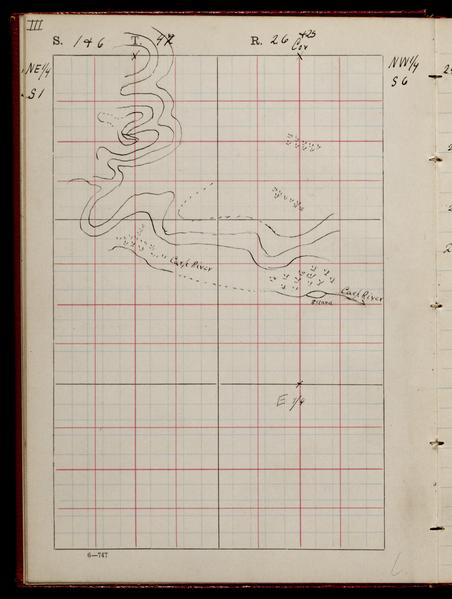 III
S. 1+6 T. 47 R. 26 +25
Cor
NE 1/4
S 1
NW 1/4
S 6
Carp River
Carp River
Island
E 1/4
6—747